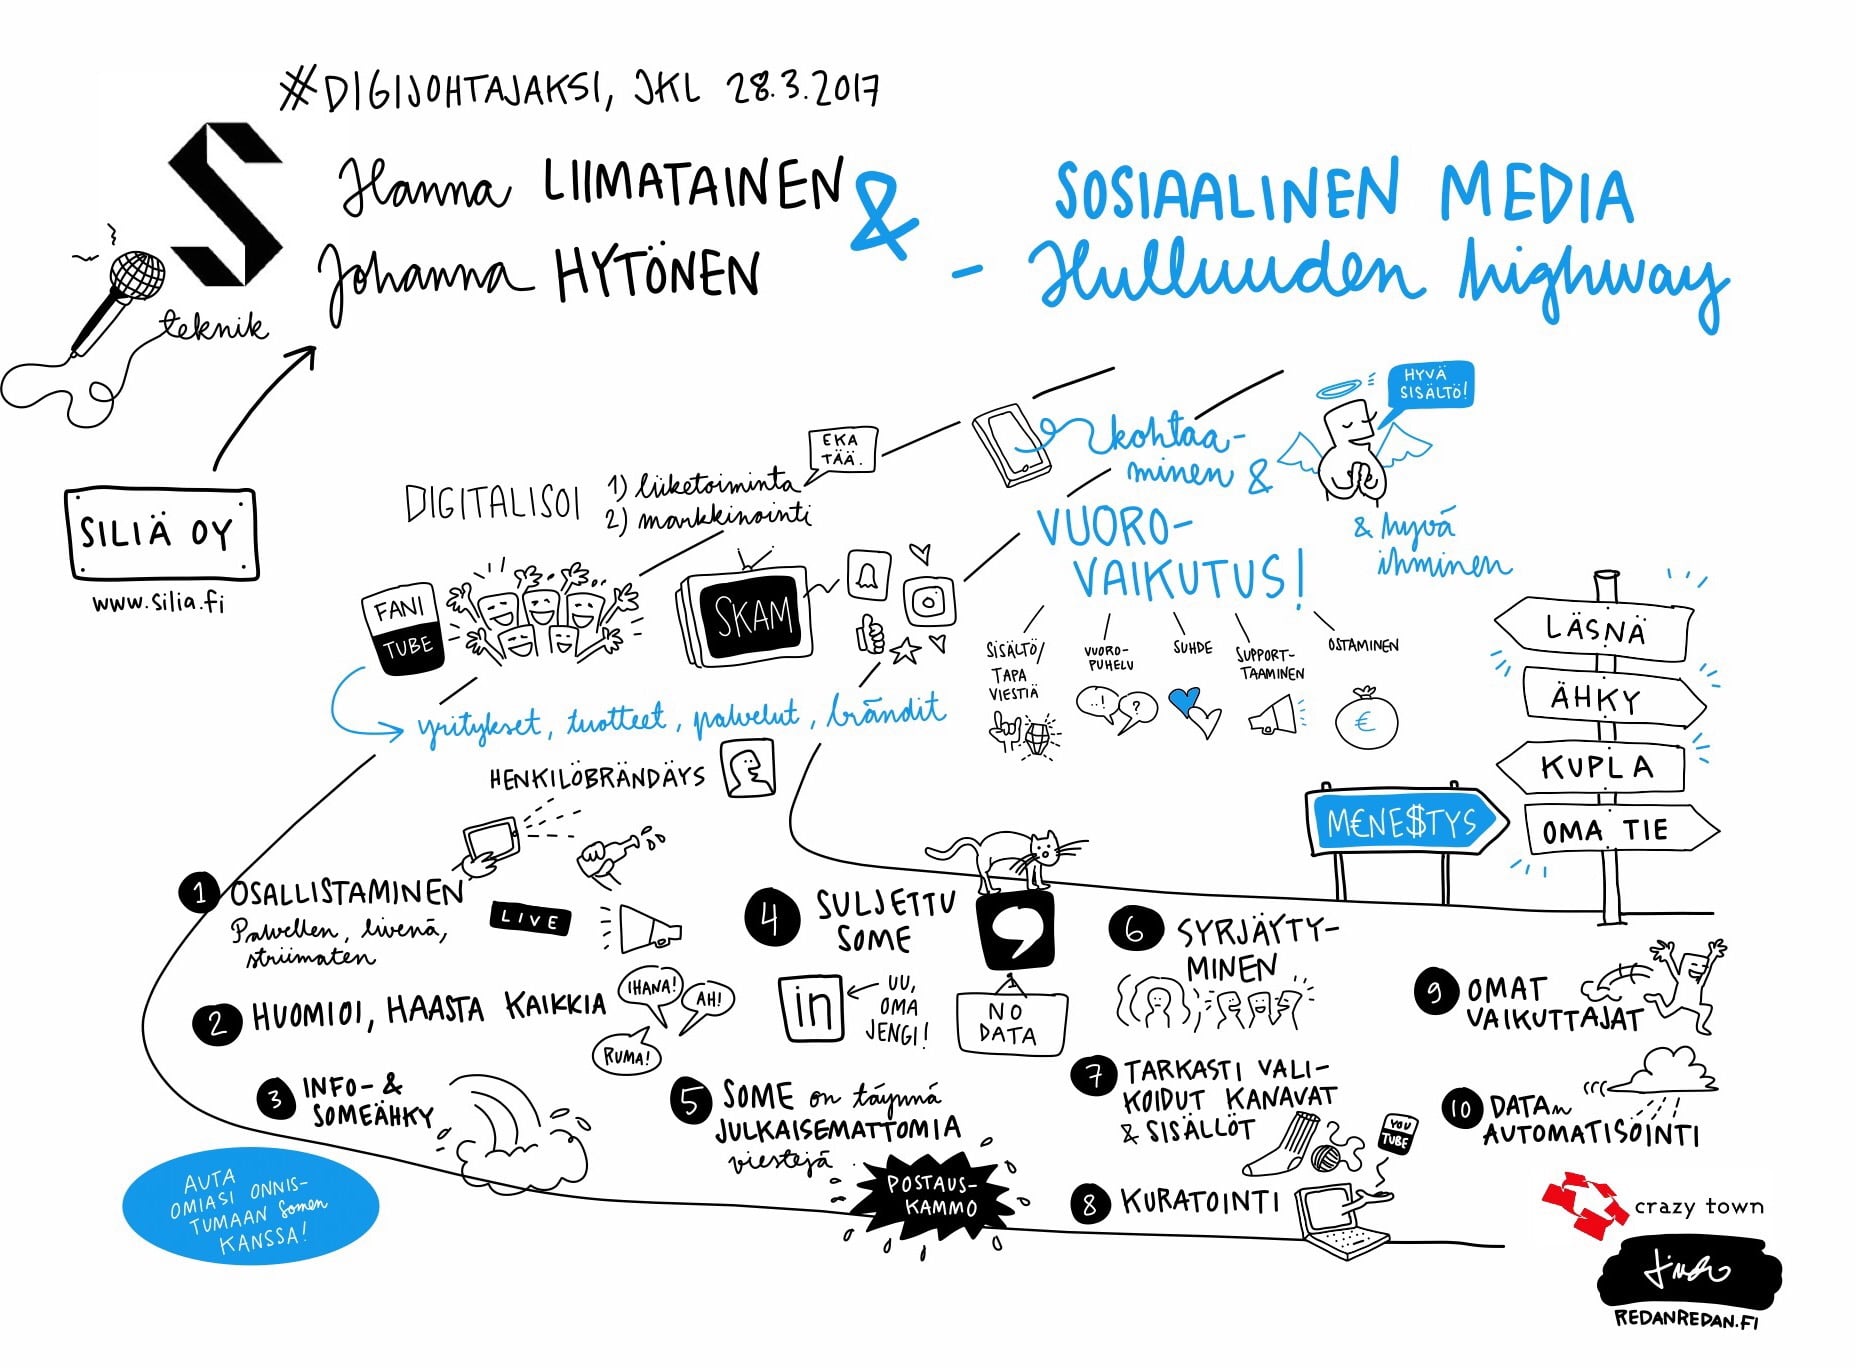 #DIGIJOHTAJAKSI, JKL 28.3.2017
Hanna LIIMATAINEN &
Johanna HYTÖNEN
SOSIAALINEN MEDIA
- Hulluuden highway
teknik
SILIÄ OY
www.silia.fi
DIGITALISOI
1) liiketoiminta
2) markkinointi
EKA
TÄÄ.
kohtaa-
minen &
VUORO-
VAIKUTUS!
HYVÄ
SISÄLTÖ!
& hyvä
ihminen
FANI
TUBE
SKAM
yritykset, tuotteet, palvelut, brändit
HENKILÖBRÄNDÄYS
SISÄLTÖ/
TAPA
VIESTIÄ
VUORO-
PUHELU
! ?
SUHDE
SUPPORT-
TAAMINEN
OSTAMINEN
€
LÄSNÄ
ÄHKY
KUPLA
OMA TIE
M€NE$TYS
1 OSALLISTAMINEN
Palvellen, livenä,
striimaten
LIVE
2 HUOMIOI, HAASTA KAIKKIA
IHANA!
AH!
RUMA!
3 INFO- &
SOMEÄHKY
4 SULJETTU
SOME
in
UU,
OMA
JENGI!
NO
DATA
5 SOME on täynnä
JULKAISEMATTOMIA
viestejä
POSTAUS-
KAMMO
6 SYRJÄYTY-
MINEN
7 TARKASTI VALI-
KOIDUT KANAVAT
& SISÄLLÖT
YOU
TUBE
8 KURATOINTI
9 OMAT
VAIKUTTAJAT
10 DATAn
AUTOMATISOINTI
AUTA
OMIASI ONNIS-
TUMAAN somen
KANSSA!
crazy town
REDANREDAN.FI